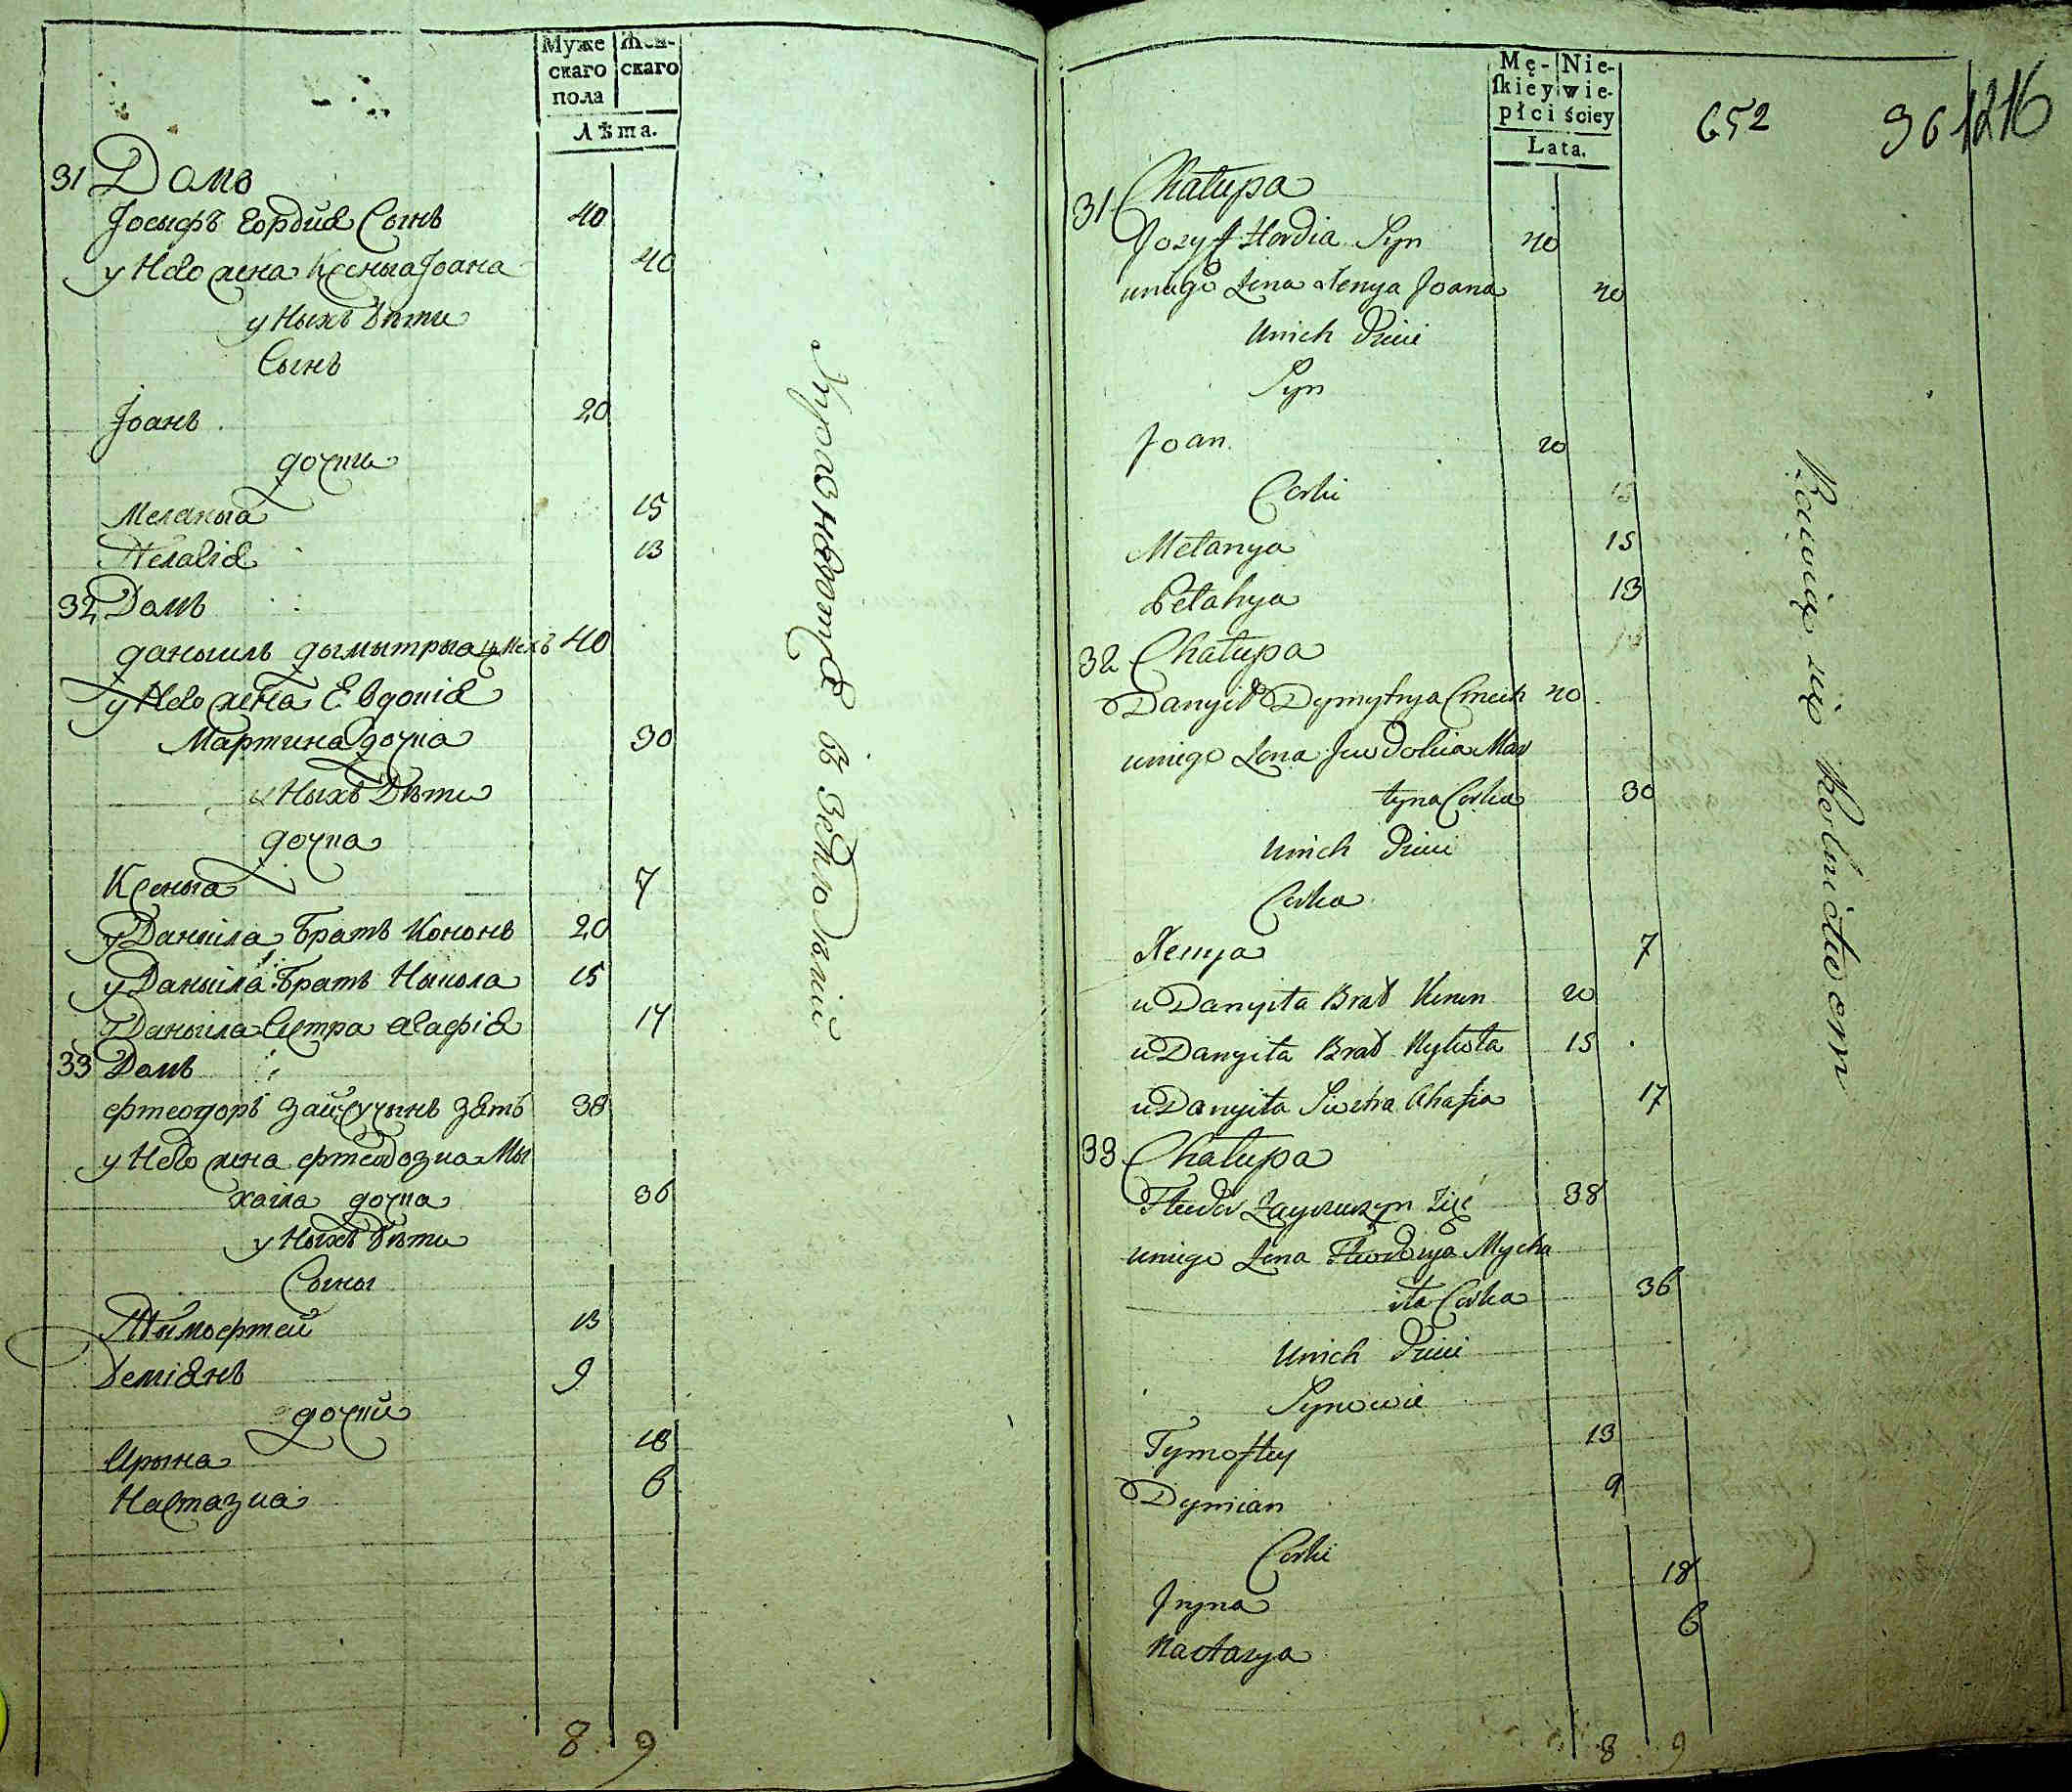 Муже
скаго
пола
Жен-
скаго
Лѣта.
31 Домъ
Іосыфъ Гордиа Сынъ 40
у Него жена Ксеныа Іоана 40
у Ныхъ Дѣти
Сынъ
Іоанъ 20
дочки
Меланыа 15
Пелагіа 13
32 Домъ
Даныилъ Дымытрыа Цмехъ 40
у Него жена Евдокіа
Мартина дочка 30
у Ныхъ Дѣти
дочка
Ксеныа 7
у Даныіла Братъ Кононъ 20
у Даныіла Братъ Ныкола 15
у Даныіла Сестра Агафіа 17
33 Домъ
Фтеодоръ Зайчучынъ зать 38
у Него жена Фтеодозиа Мы
хаіла дочка 36
у Ныхъ Дѣти
Сыны
Тымофтей 13
Деміанъ 9
дочки
Ирына 18
Настазиа 6
8 9
в Земледѣліи
Mę-
ſkiey
płci
Nie-
wie-
ściey
Lata.
652 36 1216
31 Chałupa
Jozyf Hordia Syn 40
uniego Żona Xenya Joana 40
Unich Dzieci
Syn
Joan 20
Corki
Melanya 15
Pelahya 13
32 Chałupa
Danyił Dymytrya Cmech 40
uniego Żona Juwdokia Mar
tyna Corka 30
Unich Dzieci
Corka
Xenya 7
u Danyiła Brat Konon 20
u Danyiła Brat Nykoła 15
u Danyiła Siostra Ahafia 17
33 Chałupa
Fteodor Zayczuczyn Zięć 38
uniego Żona Fteodozya Mycha
iła Corka 36
Unich Dzieci
Synowie
Tymoftey 13
Dymian 9
Corki
Jryna 18
Nastazya 6
8 9
Bawią się Rolnictwem